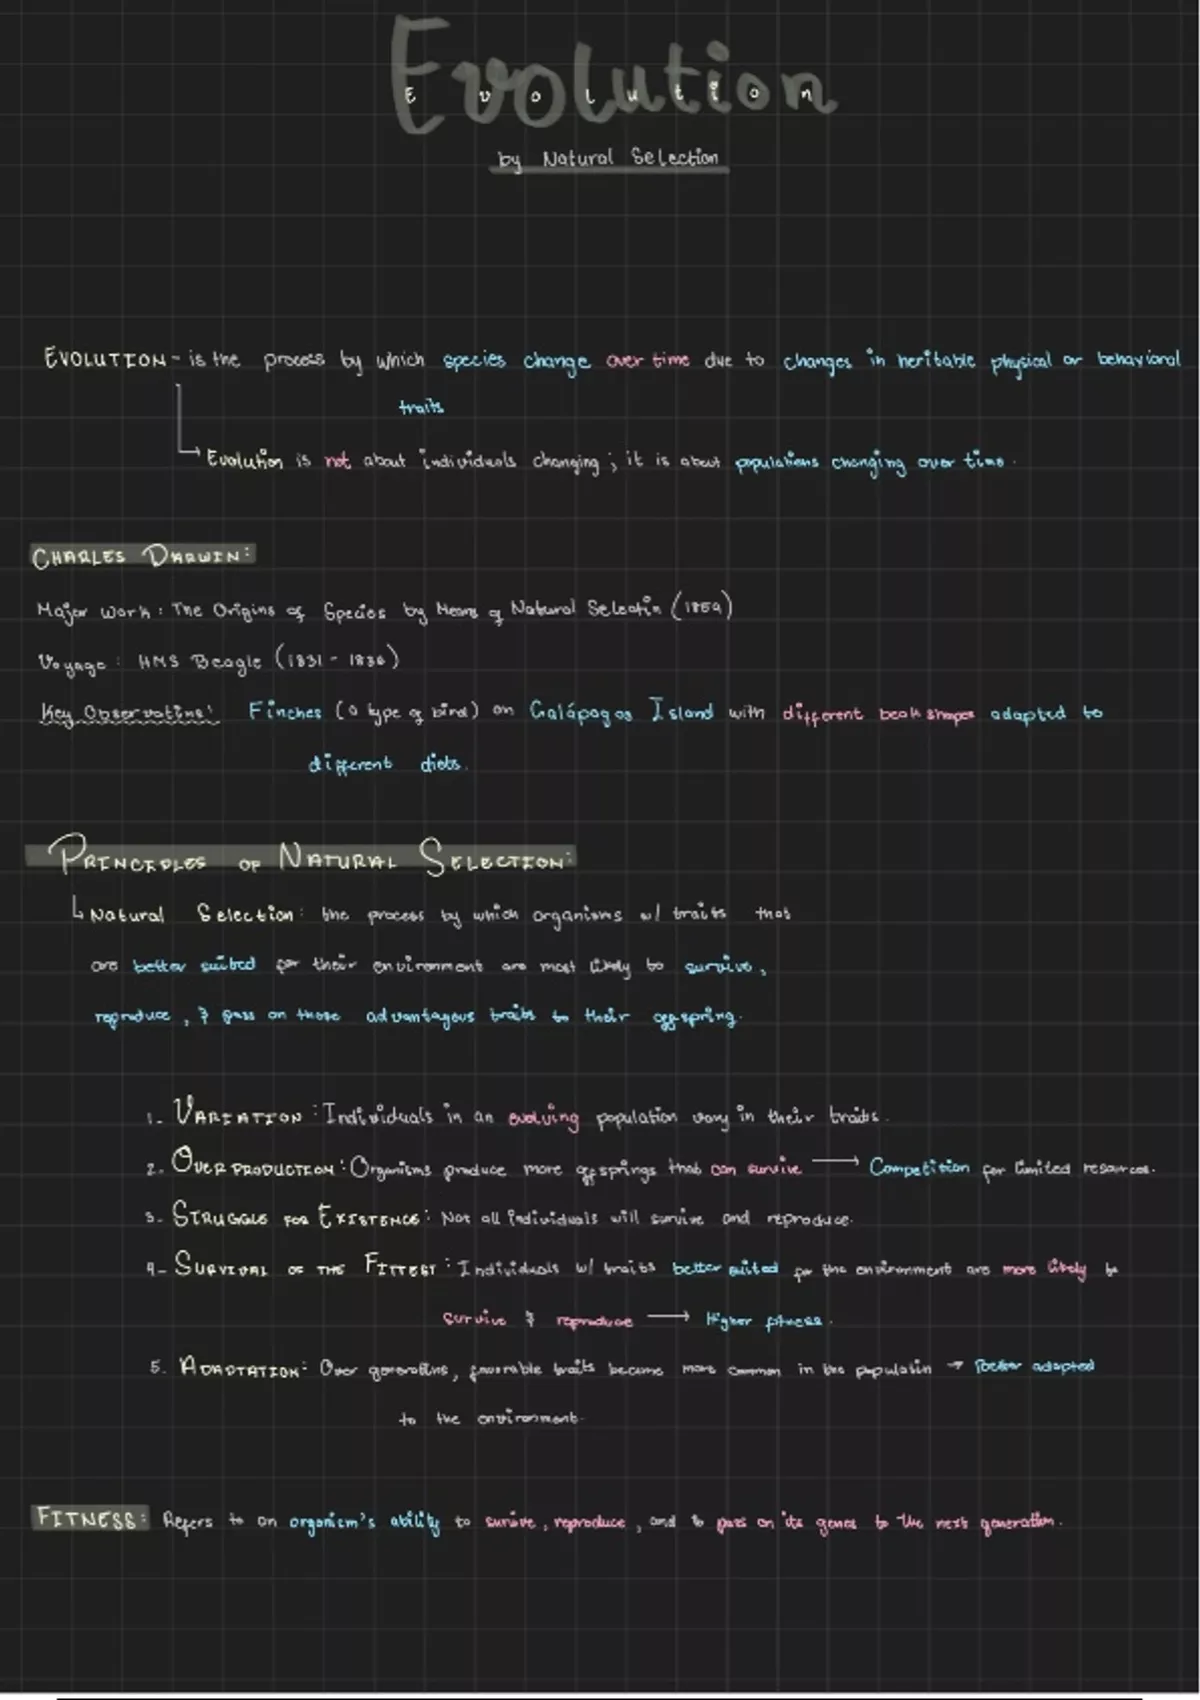 Evolution
Evolution
by Natural Selection
EVOLUTION - is the process by which species change over time due to changes in heritable physical or behavioral
traits
Evolution is not about individuals changing ; it is about populations changing over time.
CHARLES DARWIN:
Major work : The Origins of Species by Means of Natural Selectin (1859)
Voyage : HMS Beagle (1831 - 1836)
Key Observatins: Finches (a type of bird) on Galápagos Island with different beak shapes adapted to
different diets.
PRINCIPLES OF NATURAL SELECTION:
Natural Selection: the process by which organisms w/ traits that
are better suited for their environment are most likely to survive,
reproduce, & pass on those advantagous traits to their offspring.
1. VARIATION : Individuals in an evolving population vary in their traits.
2. OVERPRODUCTION : Organisms produce more offsprings that can survive → Competition for limited resources.
3. STRUGGLE FOR EXISTENCE : Not all individuals will survive and reproduce.
4. SURVIVAL OF THE FITTEST : Individuals w/ traits better suited for the environment are more likely to
survive & reproduce → Higher fitness.
5. ADAPTATION : Over generatins, favorable traits become more common in the populatin → Better adapted
to the environment.
FITNESS: Refers to an organism's ability to survive, reproduce, and to pass on its genes to the next generation.